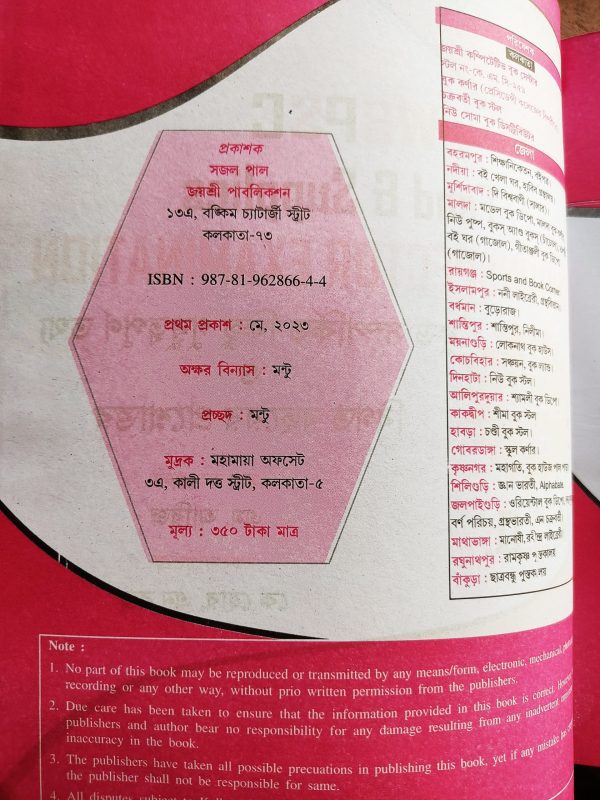 প্রকাশক
সজল পাল
জয়শ্রী পাবলিকশন
১৩এ, বঙ্কিম চ্যাটার্জী স্ট্রীট
কলকাতা-৭৩
ISBN : 987-81-962866-4-4
প্রথম প্রকাশ : মে, ২০২৩
অক্ষর বিন্যাস : মন্টু
প্রচ্ছদ : মন্টু
মুদ্রক : মহামায়া অফসেট
৩এ, কালী দত্ত স্ট্রীট, কলকাতা-৫
মূল্য : ৩৫০ টাকা মাত্র
পরিবেশক
কলকাতা
জয়শ্রী কম্পিটেটিভ বুক সেন্টার
স্টল নং-কে. এম. সি-১৫৯
বুক কর্ণার (প্রেসিডেন্সী কলেজের
চক্রবর্তী বুক স্টল
নিউ সোমা বুক ডিসট্রিবিউটর
জেলা
বহরমপুর : শিক্ষানিকেতন, বইঘর।
নদীয়া : বই খেলা ঘর, হাবিব গ্রন্থালয়।
মুর্শিদাবাদ : দি বিশ্ববাণী (সালার)।
মালদা : মডেল বুক ডিপো, মালদা বুক
নিউ পুষ্প, বুকস্ অ্যাণ্ড বুকস্
বই ঘর (গাজোল), গীতাঞ্জলী বুক ডিপো
(গাজোল)।
রায়গঞ্জ : Sports and Book Corner
ইসলামপুর : ননী লাইব্রেরী, গ্রন্থবিতান।
বর্ধমান : বুড়োরাজ।
শান্তিপুর : শান্তিপুর, নিলীমা।
ময়নাগুড়ি : লোকনাথ বুক হাউস।
কোচবিহার : সঞ্চয়ন, বুক ল্যান্ড।
দিনহাটা : নিউ বুক স্টল।
আলিপুরদুয়ার : শ্যামলী বুক ডিপো।
কাকদ্বীপ : শীমা বুক স্টল
হাবড়া : চণ্ডী বুক স্টল।
গোবরডাঙ্গা : স্কুল কর্ণার।
কৃষ্ণনগর : মহাগতি, বুক হাউজ পাল
শিলিগুড়ি : জ্ঞান ভারতী, Alphabate
জলপাইগুড়ি : ওরিয়েন্টাল বুক ডিপো,
বর্ণ পরিচয়, গ্রন্থভারতী, এন চক্রবর্তী।
মাথাভাঙ্গা : মানোষী, রবীন্দ্র লাইব্রেরী।
রঘুনাথপুর : রামকৃষ্ণ পুস্তকালয়
বাঁকুড়া : ছাত্রবন্ধু পুস্তকালয়
Note :
1. No part of this book may be reproduced or transmitted by any means/form, electronic, mechanical,
recording or any other way, without prio written permission from the publishers.
2. Due care has been taken to ensure that the information provided in this book is correct. However,
publishers and author bear no responsibility for any damage resulting from any inadvertent
inaccuracy in the book.
3. The publishers have taken all possible precuations in publishing this book, yet if any mistake has
the publisher shall not be responsible for same.
4. All disputes subject to